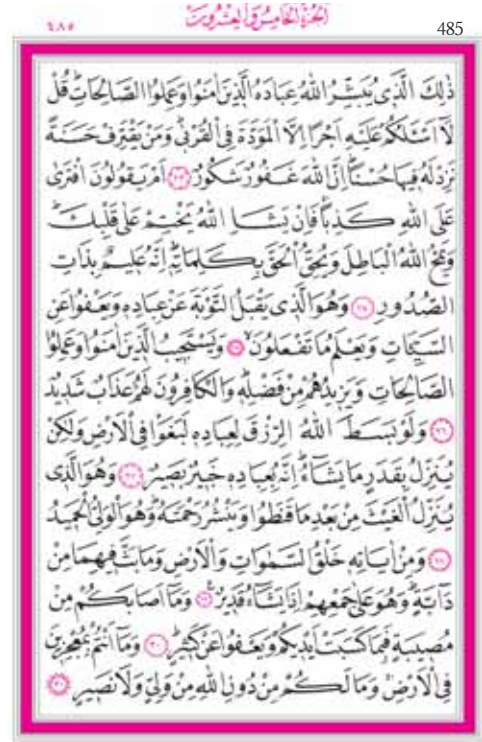 ٤٨٥ الجزء الخامس والعشرون 485
ذٰلِكَ الَّذٖي يُبَشِّرُ اللّٰهُ عِبَادَهُ الَّذٖينَ اٰمَنُوا وَعَمِلُوا الصَّالِحَاتِؕ قُلْ
لَٓا اَسْـَٔلُكُمْ عَلَيْهِ اَجْرًا اِلَّا الْمَوَدَّةَ فِي الْقُرْبٰىؕ وَمَنْ يَقْتَرِفْ حَسَنَةً
نَزِدْ لَهُ فٖيهَا حُسْنًاؕ اِنَّ اللّٰهَ غَفُورٌ شَكُورٌ ﴿٢٣﴾ اَمْ يَقُولُونَ افْتَرٰى
عَلَى اللّٰهِ كَذِبًاۚ فَاِنْ يَشَاِ اللّٰهُ يَخْتِمْ عَلٰى قَلْبِكَؕ
وَيَمْحُ اللّٰهُ الْبَاطِلَ وَيُحِقُّ الْحَقَّ بِكَلِمَاتِهٖؕ اِنَّهُ عَلٖيمٌ بِذَاتِ
الصُّدُورِ ﴿٢٤﴾ وَهُوَ الَّذٖي يَقْبَلُ التَّوْبَةَ عَنْ عِبَادِهٖ وَيَعْفُوا عَنِ
السَّيِّـَٔاتِ وَيَعْلَمُ مَا تَفْعَلُونَۙ ﴿٢٥﴾ وَيَسْتَجٖيبُ الَّذٖينَ اٰمَنُوا وَعَمِلُوا
الصَّالِحَاتِ وَيَزٖيدُهُمْ مِنْ فَضْلِهٖؕ وَالْكَافِرُونَ لَهُمْ عَذَابٌ شَدٖيدٌ
﴿٢٦﴾ وَلَوْ بَسَطَ اللّٰهُ الرِّزْقَ لِعِبَادِهٖ لَبَغَوْا فِي الْاَرْضِ وَلٰكِنْ
يُنَزِّلُ بِقَدَرٍ مَا يَشَٓاءُؕ اِنَّهُ بِعِبَادِهٖ خَبٖيرٌ بَصٖيرٌ ﴿٢٧﴾ وَهُوَ الَّذٖي
يُنَزِّلُ الْغَيْثَ مِنْ بَعْدِ مَا قَنَطُوا وَيَنْشُرُ رَحْمَتَهُؕ وَهُوَ الْوَلِيُّ الْحَمٖيدُ
﴿٢٨﴾ وَمِنْ اٰيَاتِهٖ خَلْقُ السَّمٰوَاتِ وَالْاَرْضِ وَمَا بَثَّ فٖيهِمَا مِنْ
دَٓابَّةٍؕ وَهُوَ عَلٰى جَمْعِهِمْ اِذَا يَشَٓاءُ قَدٖيرٌ ﴿٢٩﴾ وَمَٓا اَصَابَكُمْ مِنْ
مُصٖيبَةٍ فَبِمَا كَسَبَتْ اَيْدٖيكُمْ وَيَعْفُوا عَنْ كَثٖيرٍؕ ﴿٣٠﴾ وَمَٓا اَنْتُمْ بِمُعْجِزٖينَ
فِي الْاَرْضِۚ وَمَا لَكُمْ مِنْ دُونِ اللّٰهِ مِنْ وَلِيٍّ وَلَا نَصٖيرٍ ﴿٣١﴾